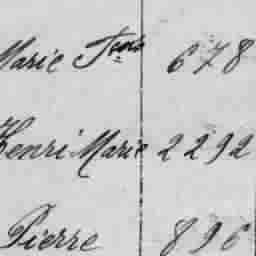 Marie Fois 678
Henri Marie 2292
Pierre 896